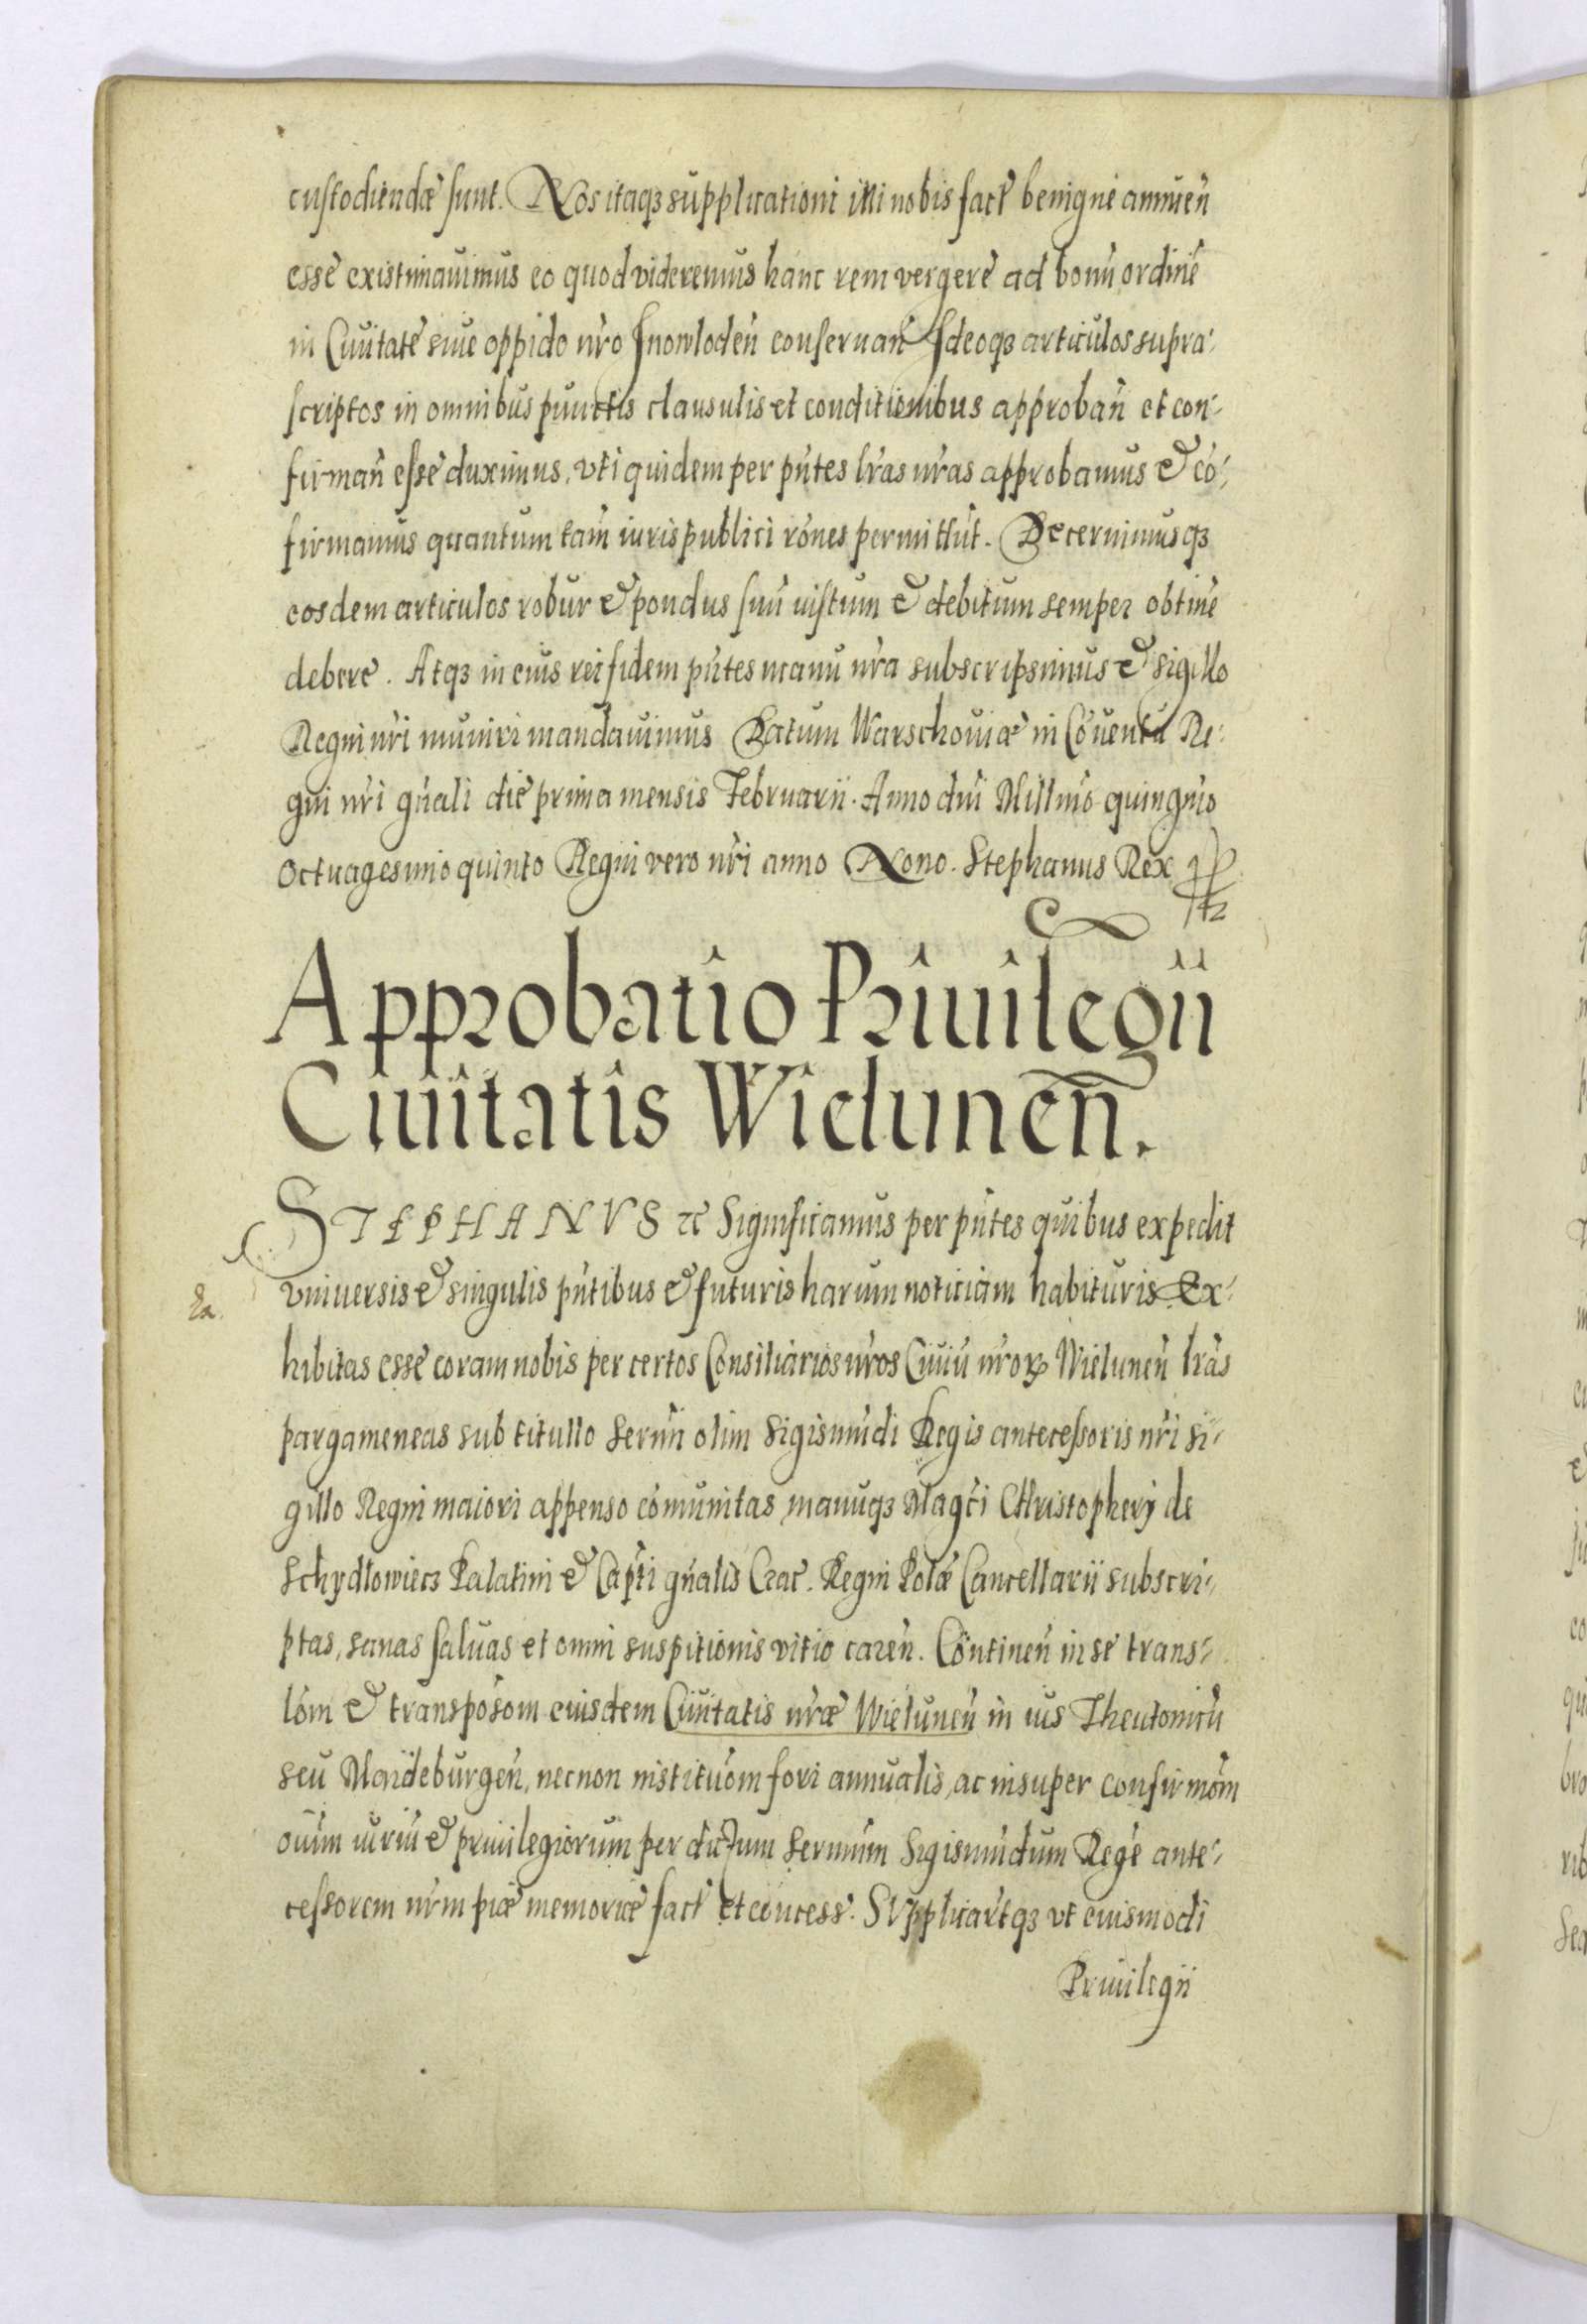 custodiendæ sunt. Nos itaqȝ supplicationi illi nobis fact̃ benigne annuen̄
esse existimauimus eo quod videremus hanc rem vergere ad bonū ordinē
in Ciuitate siue oppido nr̄o Inowloden̄ conseruan̄ Ideoqȝ articulos supra-
scriptos in omnibus punctis clausulis et conditionibus approban̄ et con-
firman̄ esse duximus, vti quidem per pn̄tes lr̄as nr̄as approbamus & cō-
firmamus quantum tam̄ iuris publici rōnes permittūt. Decernimusqȝ
eosdem articulos robur & pondus suū iustum & debitum semper obtinē
debere. Atqȝ in eius rei fidem pn̄tes manu nr̄a subscripsimus & sigillo
Regni nr̄i muniri mandauimus Datum Warschouiæ in Cōuentu Re-
gni nr̄i gn̄ali die prima mensis Februarii. Anno dn̄i Millm̄o quingm̄o
Octuagesimo quinto Regni vero nr̄i anno Nono. Stephanus Rex
Approbatio Priuilegii
Ciuitatis Wielunen̄.
STEPHANVS &c Significamus per pn̄tes quibus expedit
vniuersis & singulis pn̄tibus & futuris harum noticiam habituris Ex-
hibitas esse coram nobis per certos Consiliarios nr̄os Ciuiū nr̄oꝝ Wielunen̄ lr̄as
pargameneas sub titullo Serm̄i olim Sigismūdi Regis antecessoris nr̄i si-
gillo Regni maiori appenso cōmunitas manuqȝ Magc̄i Christopheri de
Schydlowiecz Palatini & Capt̄i gn̄alis Crac̄. Regni Pol̄æ Cancellarii subscri-
ptas, sanas saluas et omni suspitionis vitio caren̄. Continen̄ in se trans-
lōm & transposōm eiusdem Ciuitatis nr̄æ Wielunen̄ in ius Theutonicū
seu Maideburgen̄, necnon institutōm fori annualis, ac insuper confirmōm
oīum iuriū & priuilegiorum per dictum Sermum Sigismūdum Regē ante-
cessorem nr̄m piæ memoriæ fact̃ et concess. Supplicar̄tqȝ vt eiusmodi
Priuilegii